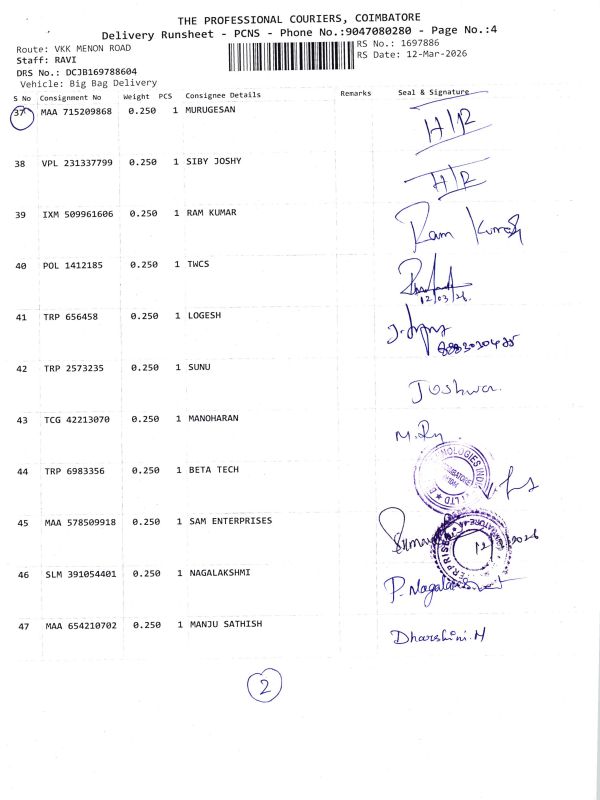 THE PROFESSIONAL COURIERS, COIMBATORE
Delivery Runsheet - PCNS - Phone No.:9047080280 - Page No.:4
Route: VKK MENON ROAD
RS No.: 1697886
Staff: RAVI
RS Date: 12-Mar-2026
DRS No.: DCJB169788604
Vehicle: Big Bag Delivery
S No Consignment No Weight PCS Consignee Details Remarks Seal & Signature
37 MAA 715209868 0.250 1 MURUGESAN H/R
38 VPL 231337799 0.250 1 SIBY JOSHY H/R
39 IXM 509961606 0.250 1 RAM KUMAR Ram Kumar
40 POL 1412185 0.250 1 TWCS
12/03/26.
41 TRP 656458 0.250 1 LOGESH
42 TRP 2573235 0.250 1 SUNU Joshwa.
43 TCG 42213070 0.250 1 MANOHARAN
44 TRP 6983356 0.250 1 BETA TECH
45 MAA 578509918 0.250 1 SAM ENTERPRISES
46 SLM 391054401 0.250 1 NAGALAKSHMI
47 MAA 654210702 0.250 1 MANJU SATHISH Dharshini.M
2